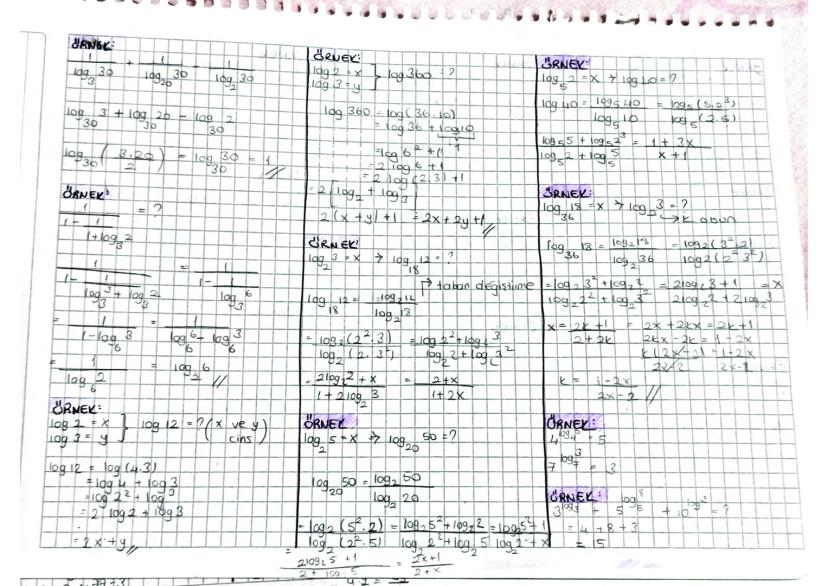 ÖRNEK:
1/log₃30 + 1/log₂₀30 - 1/log₂30
log₃₀3 + log₃₀20 - log₃₀2
log₃₀(3.20/2) = log₃₀30 = 1
ÖRNEK:
1/(1 - 1/(1+log₃2)) = ?
1/(1 - 1/(log₃3 + log₃2)) = 1/(1 - 1/log₃6)
= 1/(1-log₆3) = 1/(log₆6 - log₆3)
= 1/log₆2 = log₂6
ÖRNEK:
log2 = x
log3 = y } log12 = ? (x ve y cins)
log12 = log(4.3)
= log4 + log3
= log2² + log3
= 2 log2 + log3
= 2x + y
ÖRNEK:
log2 = x
log3 = y } log360 = ?
log360 = log(36.10)
= log36 + log10
1
= log6² + 1
= 2 log6 + 1
= 2 log(2.3) + 1
= 2[log2 + log3]
2(x + y) + 1 = 2x + 2y + 1
ÖRNEK:
log₂3 = x → log₁₈12 = ?
→ taban değiştirme
log₁₈12 = log₂12/log₂18
= log₂(2².3)/log₂(2.3²) = (log₂2² + log₂3)/(log₂2 + log₂3²)
= (2log₂2 + x)/(1 + 2log₂3) = (2+x)/(1+2x)
ÖRNEK
log₂5 = x → log₂₀50 = ?
log₂₀50 = log₂50/log₂20
= log₂(5².2)/log₂(2².5) = (log₂5² + log₂2)/(log₂2² + log₂5) = (log₂5² + 1)/(log₂2² + x)
= (2log₂5 + 1)/(2 + log₂5) = (2x+1)/(2+x)
ÖRNEK:
log₅2 = x → log40 = ?
log40 = log₅40/log₅10 = log₅(5.2³)/log₅(2.5)
(log₅5 + log₅2³)/(log₅2 + log₅5) = (1 + 3x)/(x + 1)
ÖRNEK:
log₃₆18 = x → log₂3 = ?
→ k
log₃₆18 = log₂18/log₂36 = log₂(3².2)/log₂(2².3²)
= (log₂3² + log₂2)/(log₂2² + log₂3²) = (2log₂3 + 1)/(2log₂2 + 2log₂3) = x
x = (2k+1)/(2+2k) = 2x + 2kx = 2k+1
2kx - 2k = 1 - 2x
k(2x-2)/(2x-2) = (1-2x)/(2x-2)
k = (1-2x)/(2x-2)
ÖRNEK:
4^log₄5 = 5
7^log₇3 = 3
ÖRNEK:
= 4 + 8 + 3
= 15